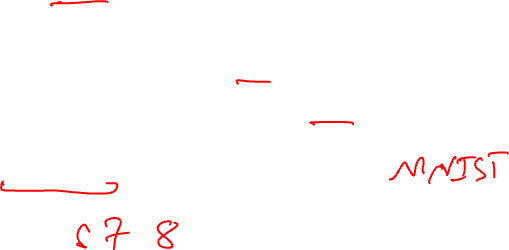 MNIST
578